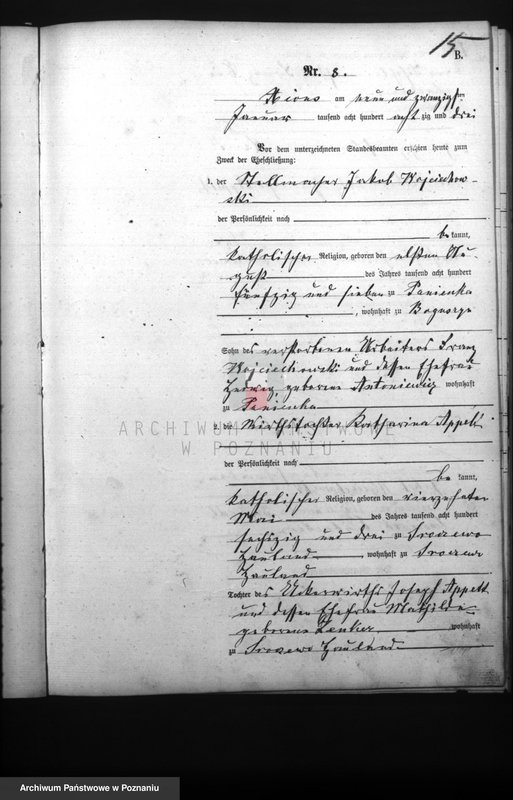 15
B.
Nr. 8.
Xions am neun und zwanzigsten
Januar tausend acht hundert acht zig und drei
Vor dem unterzeichneten Standesbeamten erschien heute zum
Zweck der Eheschließung:
1. der Stellmacher Jakob Wojciechow-
ski
der Persönlichkeit nach
be kannt,
katholischer Religion, geboren den elften Au-
gust des Jahres tausend acht hundert
fünfzig und sieben zu Panienka
, wohnhaft zu
Sohn des verstorbenen Arbeiters Franz
Wojciechowski und dessen Ehefrau
Hedwig geborene Antoniewicz wohnhaft
zu Panienka
2. die Wirthstochter Katharina Appelt
ARCHIWUM PAŃSTWOWE
W POZNANIU
der Persönlichkeit nach
be kannt,
katholischer Religion, geboren den vierzehnten
Mai des Jahres tausend acht hundert
sechszig und drei zu
Hauland , wohnhaft zu
Hauland
Tochter des Ackerwirths Joseph Appelt
und dessen Ehefrau Mathilde
geborene Zenker wohnhaft
zu Hauland
Archiwum Państwowe w Poznaniu